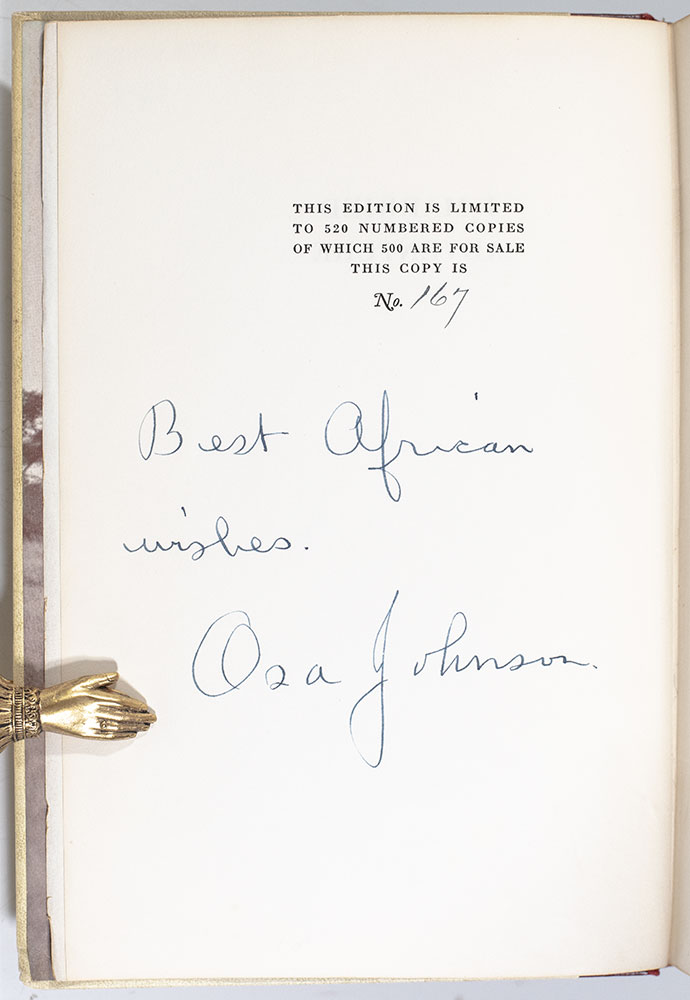 THIS EDITION IS LIMITED
TO 520 NUMBERED COPIES
OF WHICH 500 ARE FOR SALE
THIS COPY IS
No. 167
Best African
wishes.
Osa Johnson.